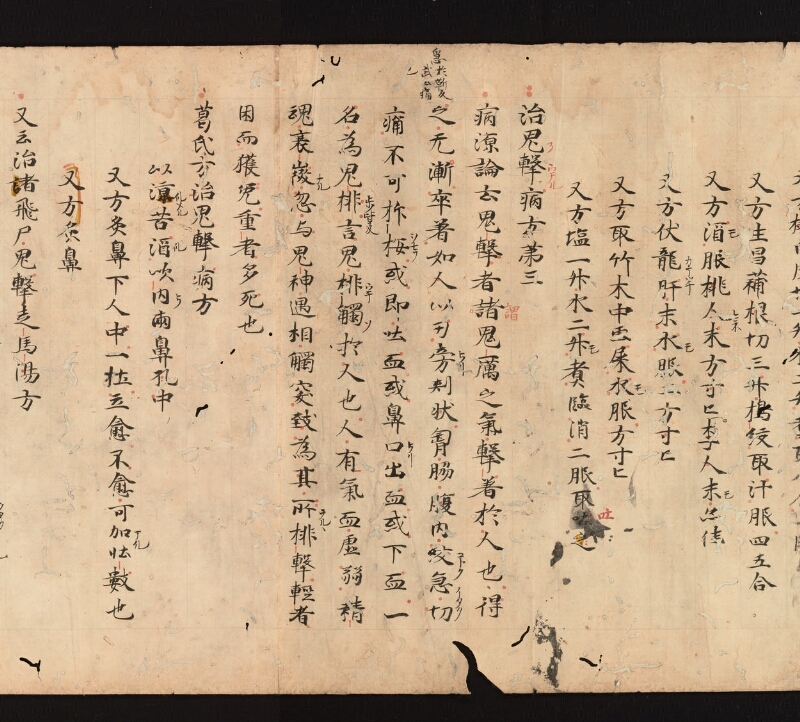 又方生昌蒲根切三升搗絞取汁服四五合
又方酒服桃人末方寸匕李人末尤佳
又方伏龍肝末水服一方寸匕
又方取竹木中虫屎水服方寸匕
又方塩一升水二升煮臨消二服取吐
治鬼擊病方第三
病源論云鬼擊者謂鬼厲之氣擊著於人也得
之无漸卒著如人以刀旁刾状胷脇腹内絞急切
痛不可柞桜或即吐血或鼻口出血或下血一
名為鬼排言鬼排觸扵人也人有氣血虛弱精
魂衰微忽与鬼神遇相觸突致為其所排擊輕者
因而獲免重者多死也
葛氏方治鬼擊病方
以淳苦酒吹内兩鼻孔中
又方灸鼻下人中一壮立愈不愈可加壮數也
又方灸鼻
又云治諸飛尸鬼擊走馬湯方